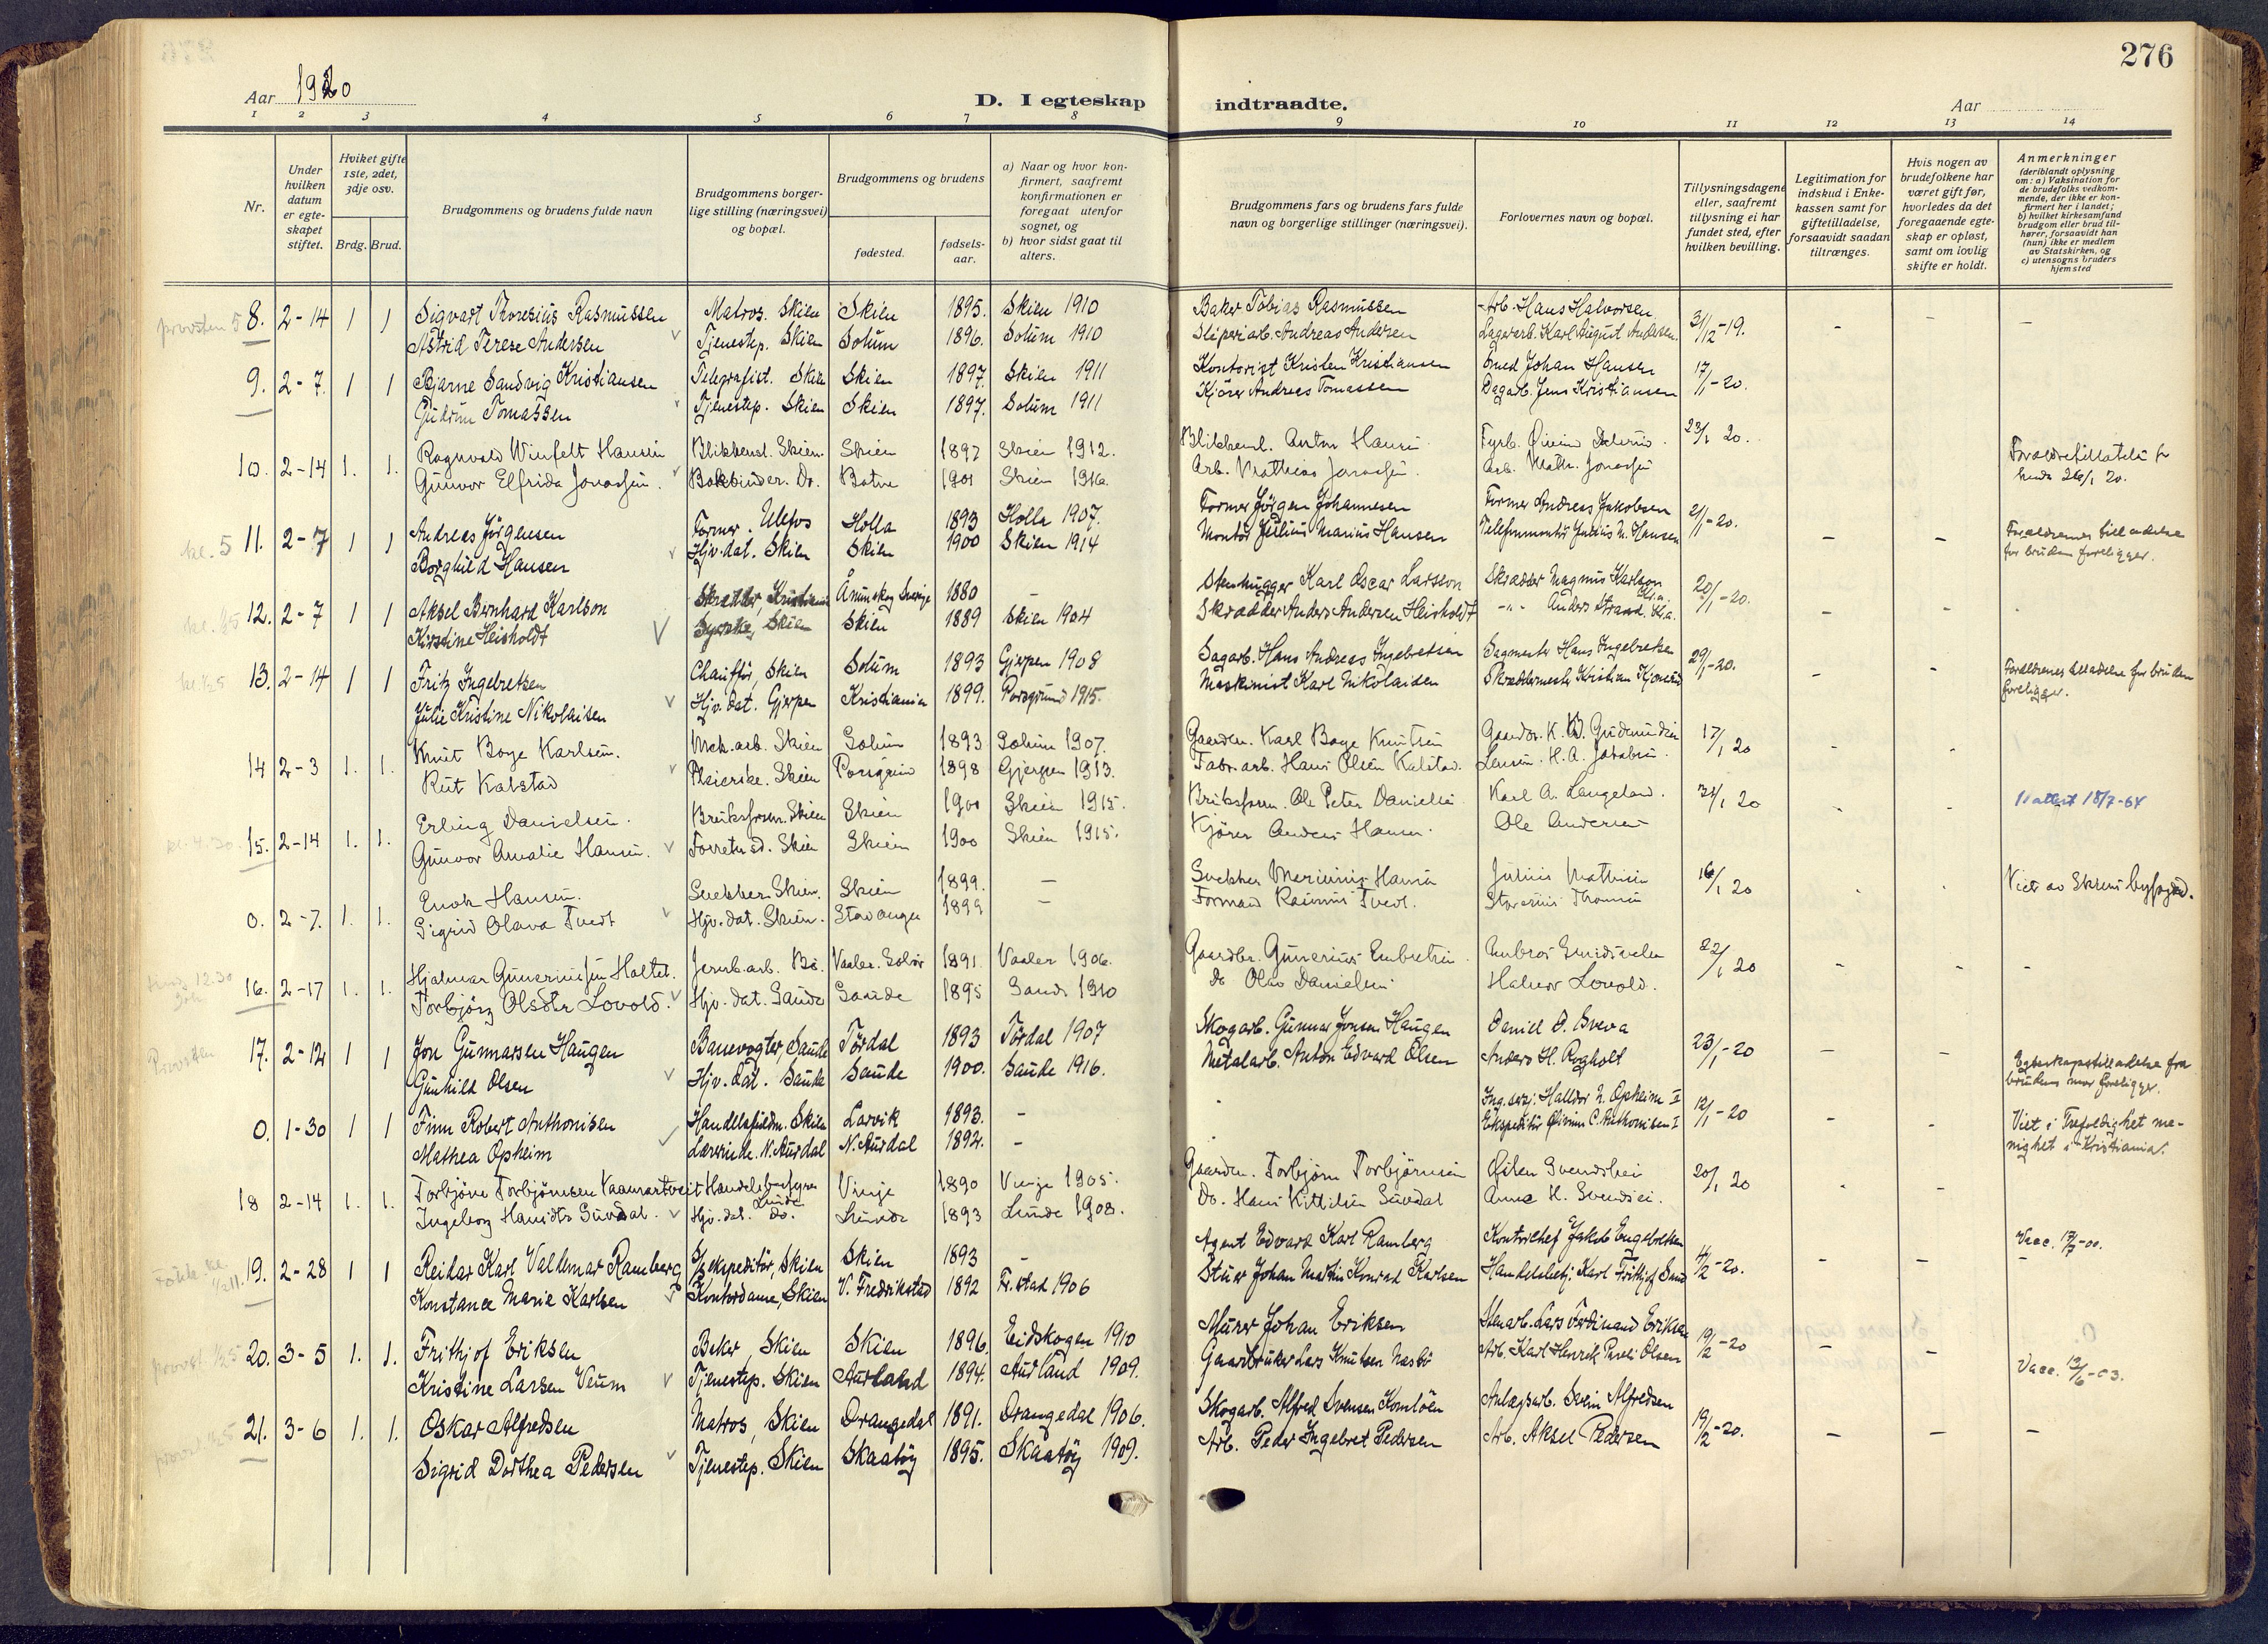 276
Aar 1920
D. I egteskap indtraadte.
Aar
1 2 3 4 5 6 7 8 9 10 11 12 13 14
Nr.
Under hvilken datum er egteskapet stiftet.
Hviket gifte 1ste, 2det, 3dje osv.
Brdg. Brud.
Brudgommens og brudens fulde navn
Brudgommens borgerlige stilling (næringsvei) og bopæl.
Brudgommens og brudens
fødested.
fødselsaar.
a) Naar og hvor konfirmert, saafremt konfirmationen er foregaat utenfor sognet, og
b) hvor sidst gaat til alters.
Brudgommens fars og brudens fars fulde navn og borgerlige stillinger (næringsvei).
Forlovernes navn og bopæl.
Tillysningsdagene eller, saafremt tillysning ei har fundet sted, efter hvilken bevilling.
Legitimation for indskud i Enkekassen samt for giftetilladelse, forsaavidt saadan tiltrænges.
Hvis nogen av brudefolkene har været gift før, hvorledes da det foregaaende egteskap er opløst, samt om lovlig skifte er holdt.
Anmerkninger (deriblandt oplysning om: a) Vaksination for de brudefolks vedkommende, der ikke er konfirmert her i landet; b) hvilket kirkesamfund brudgom eller brud tilhører, forsaavidt han (hun) ikke er medlem av Statskirken, og c) utensogns bruders hjemsted
provsten 5 8. 2-14 1 1 Sigvart Thoresius Rasmussen Matros. Skien Skien 1895. Skien 1910 Baker Tobias Rasmussen Arb. Hans Halvorsen 31/12-19. - - -
Astrid Terese Andersen Tjenestep. Skien Solum 1896. Solum 1910 Sliperiarb. Andreas Andersen Lagerarb. Karl August Andersen
9. 2-7. 1 1 Bjarne Sandvig Kristiansen Telegrafist. Skien Skien 1897. Skien 1911 Kontorist Kristen Kristiansen Smed Johan Hansen 17/1-20.
Gudrun Tomassen Tjenestep. Skien Skien 1897. Solum 1911 Kjører Andreas Tomassen Dagarb. Jens Kristiansen
10. 2-14 1. 1. Ragnvald Winfelt Hansen Blikkensl. Skien. Skien 1897 Skien 1912. Blikkensl. Anton Hansen Fyrb. 23/1 20.
Gunvor Elfrida Jonassen. Bokbinder. Do. 1901 Skien 1916. Arb. Mathias Jonassen. Arb. Math. Jonassen
26/1 20.
kl. 5 11. 2-7 1 1 Andreas Jörgensen Former. Ulefos Holla 1893 Holla 1907. Former Jörgen Johannesen Former Andreas Jakobsen 21/1-20. - -
Borghild Hansen Hjv. dat. Skien Skien 1900 Skien 1914 Montör Julius Marius Hansen Telefonmontör Julius M. Hansen
Forældrenes tilladelse for bruden foreligger.
12. 2-7 1 1 Aksel Bernhard Karlson Skrædder, Kristiania Åmunskog Sverige 1880 - Stenhugger Karl Oscar Larsson Skrædder Magnus Karlson Kr.a. 20/1-20. -
Kirstine Heisholdt Syerske, Skien Skien 1889 Skien 1904 Skrædder Anders Andersen Heisholdt -"- Anders Strand. Kr.a.
13. 2-14 1 1 Fritz Ingebretsen Chauffør, Skien Solum 1893 Gjerpen 1908 Sagarb. Hans Andreas Ingebretsen Sagmester Hans Ingebretsen 29/1-20. - -
Julie Kristine Nikolaisen Hjv. dat. Gjerpen Kristiania 1899. Porsgrund 1915. Maskinist Karl Nikolaisen Skræddermester Kristian
Forældrenes tilladelse for bruden foreligger.
14 2-3 1. 1. Knut Boye Karlsen. Mek. arb. Skien Solum 1893 Solum 1907. Gaardbr. Karl Boye Knutsen Gaardbr. K. B. Gudmundsen 17/1 20 - -
Rut Kalstad Pleierske. Skien Porsgrund 1898 Gjerpen 1913. Fabr. arb. Hans Olsen Kalstad. H. A. Jakobsen.
15. 2-14 1. 1. Erling Danielsen. Skien Skien 1900 Skien 1915. Ole Peter Danielsen Karl A. Langeland. 31/1 20 - -
Gunvor Amalie Hansen. Skien Skien 1900 Skien 1915. Kjører Anders Hansen. Ole Andersen
Vattest 18/7-64
0. 2-7. 1. 1. Enok Hansen. Snekker. Skien. Skien 1899. - Snekker Marinius Hansen Julius Mathisen 16/1 20
Sigrid Olava Tvedt Hjv. dat. Skien. Stavanger 1899 - Formand Rasmus Tvedt. Thomsen
Viet av Skiens byfogd.
12.30 16. 2-17 1. 1. Hjalmar Gunerius­sen Holtet. Jernb. arb. Bö. Vaaler. Solör 1891. Vaaler 1906. Gaardbr. Gunerius Embretsen. 22/1 20 - - -
Torbjörg Olsdtr Lovold. Hjv. dat. Saude Saude 1895 Saude 1910 Do Olav Danielsen Halvor Lovold.
Provsten 17. 2-12 1 1 Jon Gunnarsen Haugen Banevogter, Saude Tördal 1893 Tördal 1907 Skogarb. Gunnar Jonsen Haugen Daniel D. Sveva 23/1-20 - -
Gunhild Olsen Hjv. dat. Saude Saude 1900. Saude 1916. Metalarb. Anton Edvard Olsen Anders H. Rogholt
Egteskapstilladelse fra brudens mor foreligger.
0. 1-30 1 1 Finn Robert Anthonisen Handelsfuldm. Skien Larvik 1893. - Halldor N. Opheim II 12/1-20 - -
Mathea Opheim Lærerinde. N. Aurdal N. Aurdal 1892. - Ekspeditör C. Anthonisen I
Viet i Trefoldighet menighet i Kristiania.
18 2-14 1. 1. Torbjörn Torbjörnsen Vaamartveit Handelsbestyrer Lunde Vinje 1890 Vinje 1905. Gaardbr. Torbjörn Torbjörnsen 20/1 20
Ingeborg Hansdtr Suvdal. Hjv. dat. Do. Lunde 1893 Lunde 1908. Do. Hans Kittilsen Suvdal Anne H.
19. 2-28 1 1 Reidar Karl Valdemar Ramberg Skien Skien 1893 - Agent Edvard Karl Ramberg Kontorchef Jakob Engebretsen 4/2-20. - -
Konstance Marie Karlsen Kontordame, Skien V. Fredrikstad 1892 Fr.stad 1906 Stuer Johan Martin Konrad Karlsen Handelsbetj. Karl Frithjof
Vacc. 17/7-00.
-
20. 3-5 1. 1. Frithjof Eriksen Baker, Skien Skien 1896. Eidskogen 1910 Murer Johan Eriksen Stenarb. Lars Ferdinand Eriksen 19/2-20 - -
Kristine Larsen Veum Tjenestep. Skien Aurland 1894. Aurland 1909. Gaardbruker Lars Knutsen Næsbö Arb. Karl Henrik Olsen
Vacc. 13/6-03.
21. 3-6 1. 1. Oskar Alfredsen Matros, Skien Drangedal 1891. Drangedal 1906. Skogarb. Alfred Svensen Anlægsarb. Svein Alfredsen 19/2-20. - - -
Sigrid Dorthea Pedersen Tjenestep. Skien Skaatöy 1895. Skaatöy 1909. Arb. Peder Ingebret Pedersen Arb. Aksel Pedersen